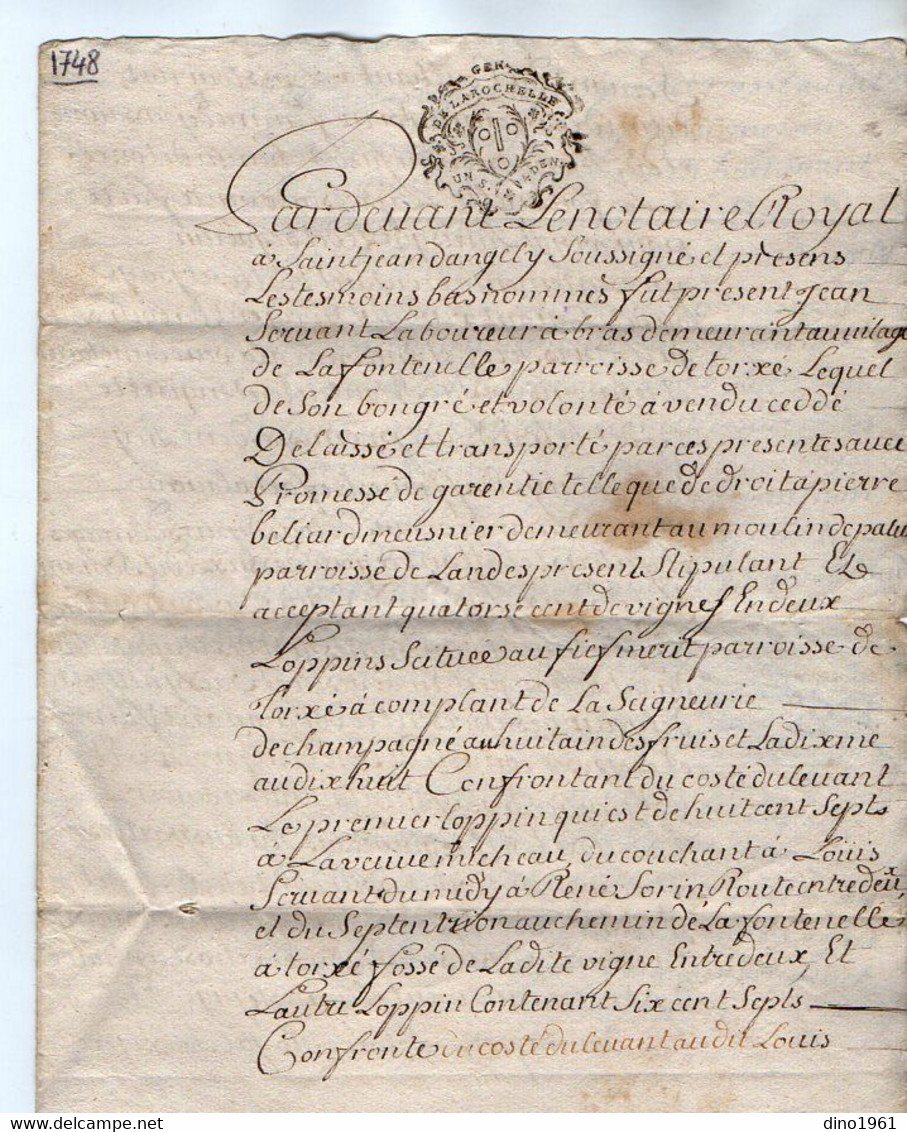 1748
GEN
DE LAROCHELLE
UN S. 4 DEN
Pardevant Le notaire Royal
a Saint jean dangely Soussigné et presens
Les tesmoins bas nommés fut present Jean
Servant Laboureur à bras demeurant au vilage
de La fontenelle parroisse de torxé Lequel
de Son bon gré et volonté à vendu ceddé
Delaissé et transporté par ces presentes avec
Promesse de garentie telle que de droit a pierre
beliard meusnier demeurant au moulin de palu
parroisse de Landes present Stipulant Et
acceptant quatorse cent de vignes En deux
Loppins Scituée au fief merit parroisse de
Torxé à complant de La Seigneurie
de champagné au huitain des fruis et La dixme
au dix huit Confrontant du costé du levant
Le premier Loppin qui est de huit cent Septs
à La veuve micheau, du couchant à Loüis
Servant du midy à René Sorin Route entre deux
et du Septentrion au chemin de La fontenelle
à torxé fossé de Ladite vigne Entre deux, Et
L'autre Loppin Contenant Six cent Septs
Confronte du costé du levant audit Louis
dino1961